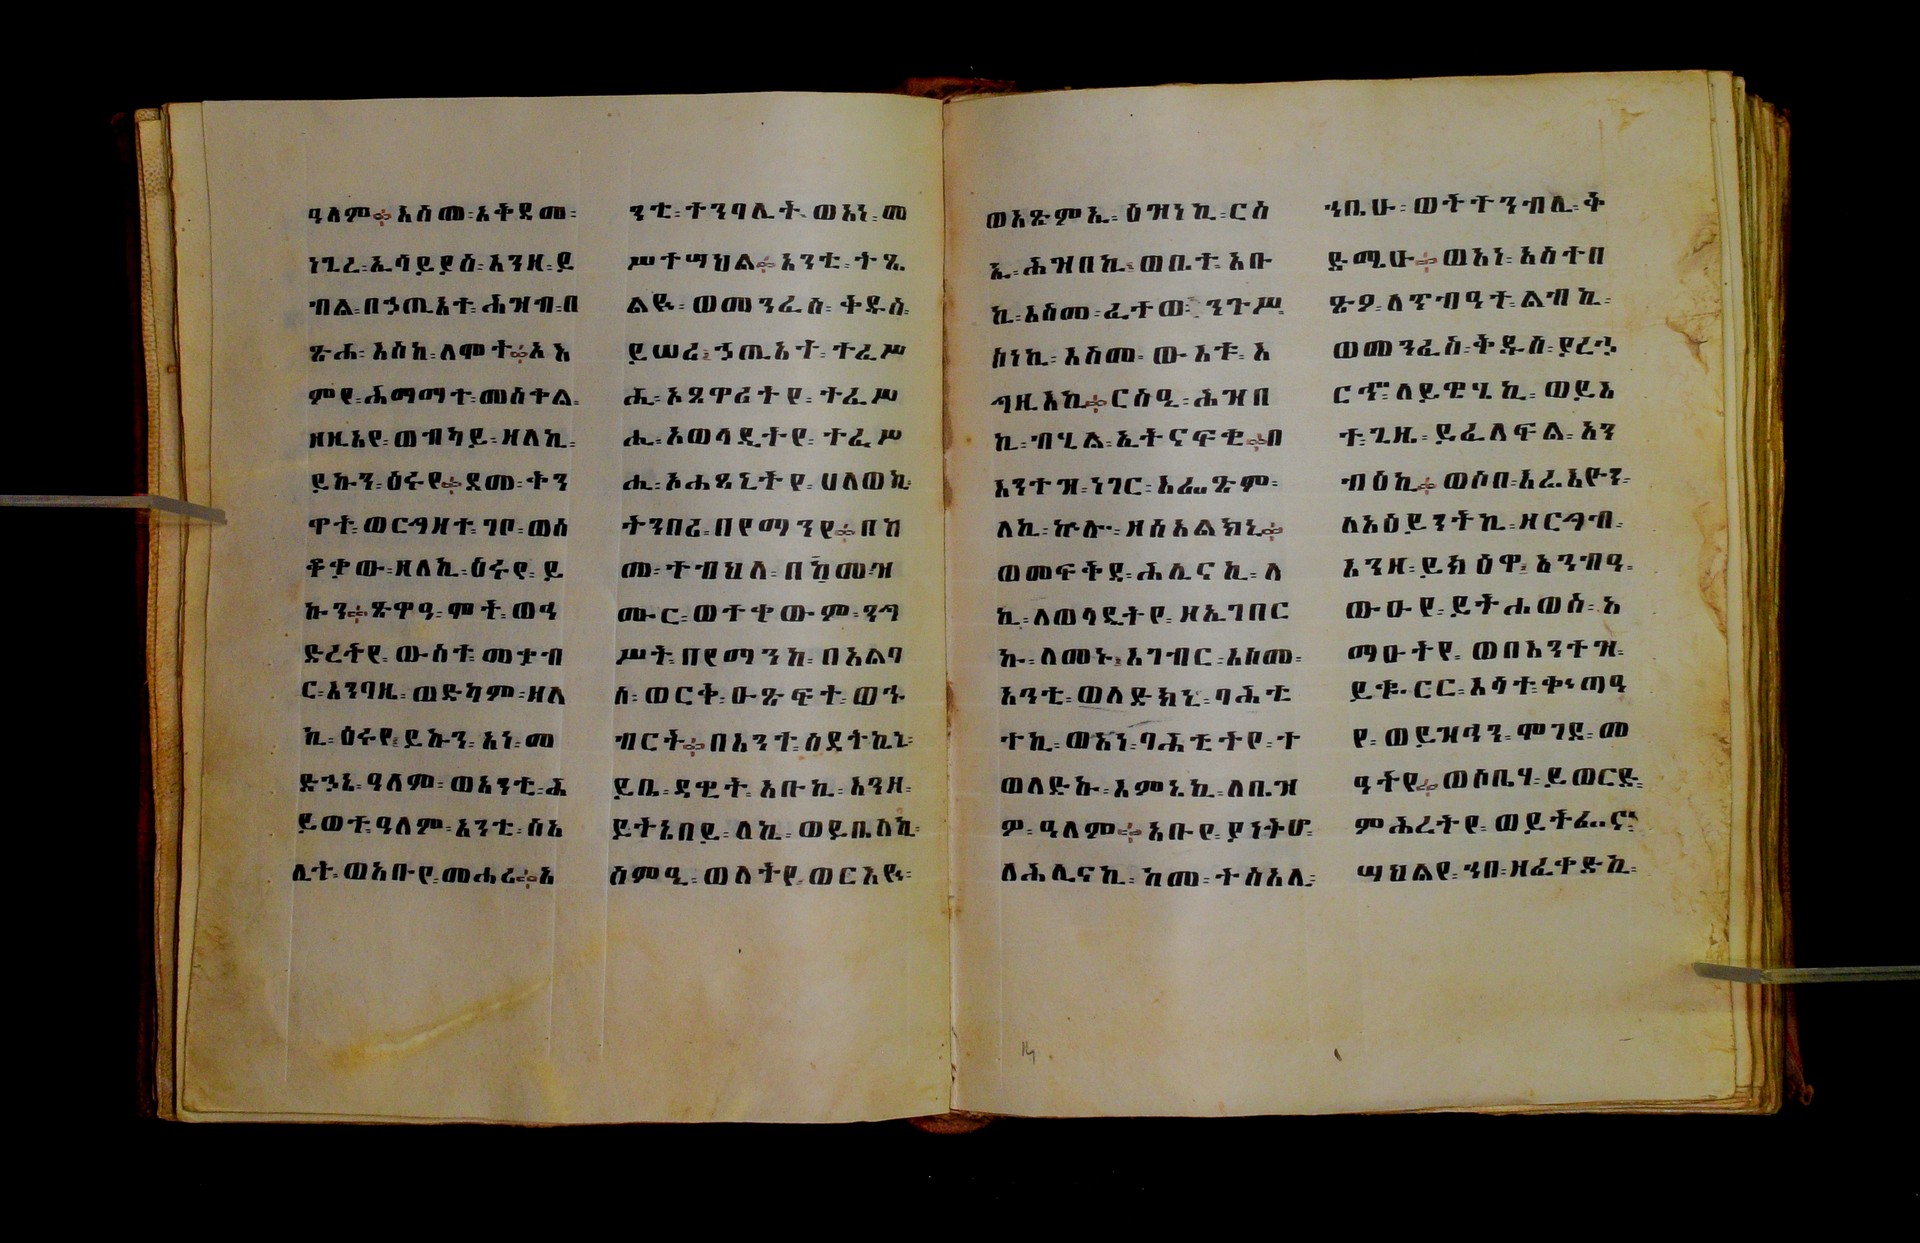 ዓለም፨ እስመ፡ አቅደመ፡
ነጊረ፡ ኢሳይያስ፡ እንዘ፡ ይ
ብል፡ በኃጢአተ፡ ሕዝብ፡ በ
ጽሐ፡ እስከ፡ ለሞት፨ እ እ
ምየ፡ ሕማማተ፡ መስቀል፡
ዘዚአየ፡ ወብካይ፡ ዘለኪ፡
ይኩን፡ ዕሩየ፨ ደመ፡ ቅን
ዋት፡ ወርግዘተ፡ ገቦ፡ ወሰ
ቆቃው፡ ዘለኪ፡ ዕሩየ፡ ይ
ኩን፨ ጽዋዓ፡ ሞት፡ ወኃ
ድረትየ፡ ውስተ፡ መቃብ
ር፡ አንባዚ፡ ወድካም፡ ዘለ
ኪ፡ ዕሩየ፡ ይኩን፡ አነ፡ መ
ድኃኔ፡ ዓለም፡ ወአንቲ፡ ሕ
ይወተ፡ ዓለም፡ አንቲ፡ ስእ
ሊት፡ ወአቡየ፡ መሐሪ፨ አ
ንቲ፡ ተንባሊት፡ ወአነ፡ መ
ሥተሣህል፨ አንቲ፡ ተጼ
ልዪ፡ ወመንፈስ፡ ቅዱስ፡
ይሠሪ፡ ኃጢአተ፡ ተፈሥ
ሒ፡ ኦጸዋሪትየ፡ ተፈሥ
ሒ፡ ኦወላዲትየ፡ ተፈሥ
ሒ፡ ኦሐፃኒትየ፡ ሀለወኪ፡
ትንበሪ፡ በየማንየ፨ በከ
መ፡ ተብህለ፡ በከመ፡ መዝ
ሙር፡ ወተቀውም፡ ንግ
ሥት፡ በየማንከ፡ በአልባ
ሰ፡ ወርቅ፡ ዑጽፍት፡ ወኁ
ብርት፨ በእንተ፡ ስደትኪኒ፡
ይቤ፡ ዳዊት፡ አቡኪ፡ እንዘ፡
ይትኔበይ፡ ለኪ፡ ወይቤለኪ፡
ስምዒ፡ ወለትየ፡ ወርእዪ፡
ወአጽምኢ፡ ዕዝነኪ፡ ርስ
ኢ፡ ሕዝበኪ፡ ወቤተ፡ አቡ
ኪ፡ እስመ፡ ፈተወ፡ ንጉሥ
ስነኪ፡ እስመ፡ ውእቱ፡ እ
ግዚእኪ፨ ርስዒ፡ ሕዝበ
ኪ፡ ብሂል፡ ኢትናፍቂ፨ በ
እንተዝ፡ ነገር፡ አፈጽም፡
ለኪ፡ ኵሎ፡ ዘሰአልክኒ፨
ወመፍቅደ፡ ሕሊናኪ፡ ለ
ኪ፡ ለወላዲትየ፡ ዘኢገበር
ኩ፡ ለመኑ፡ እገብር፡ እስመ፡
አንቲ፡ ወለድክኒ፡ ባሕቲ
ተኪ፡ ወአነ፡ ባሕቲትየ፡ ተ
ወለድኩ፡ እምኔኪ፡ ለቤዝ
ዎ፡ ዓለም፨ አቡየ፡ ያነትሆ፡
ለሕሊናኪ፡ ከመ፡ ትስአሊ፡
ኀቤሁ፡ ወትትንብሊ፡ ቅ
ድሜሁ፨ ወአነ፡ አስተበ
ጽዖ፡ ለጥብዓተ፡ ልብኪ፡
ወመንፈስ፡ ቅዱስ፡ ያረኁ
ርኅ፡ ለይውሂኪ፡ ወይእ
ተ፡ ጊዜ፡ ይፈለፍል፡ አን
ብዕኪ፨ ወሶበ፡ እሬእዮን፡
ለአዕይንትኪ፡ ዘርግብ፡
እንዘ፡ ይክዕዋ፡ አንብዓ፡
ውዑየ፡ ይትሐወስ፡ አ
ማዑትየ፡ ወበእንተዝ፡
ይቈርር፡ እሳተ፡ ቅንጣዓ
የ፡ ወይዝኃን፡ ሞገደ፡ መ
ዓትየ፨ ወሶቤሃ፡ ይወርድ፡
ምሕረትየ፡ ወይትፌኖ፡
ሣህልየ፡ ኀበ፡ ዘፈቀድኪ፡